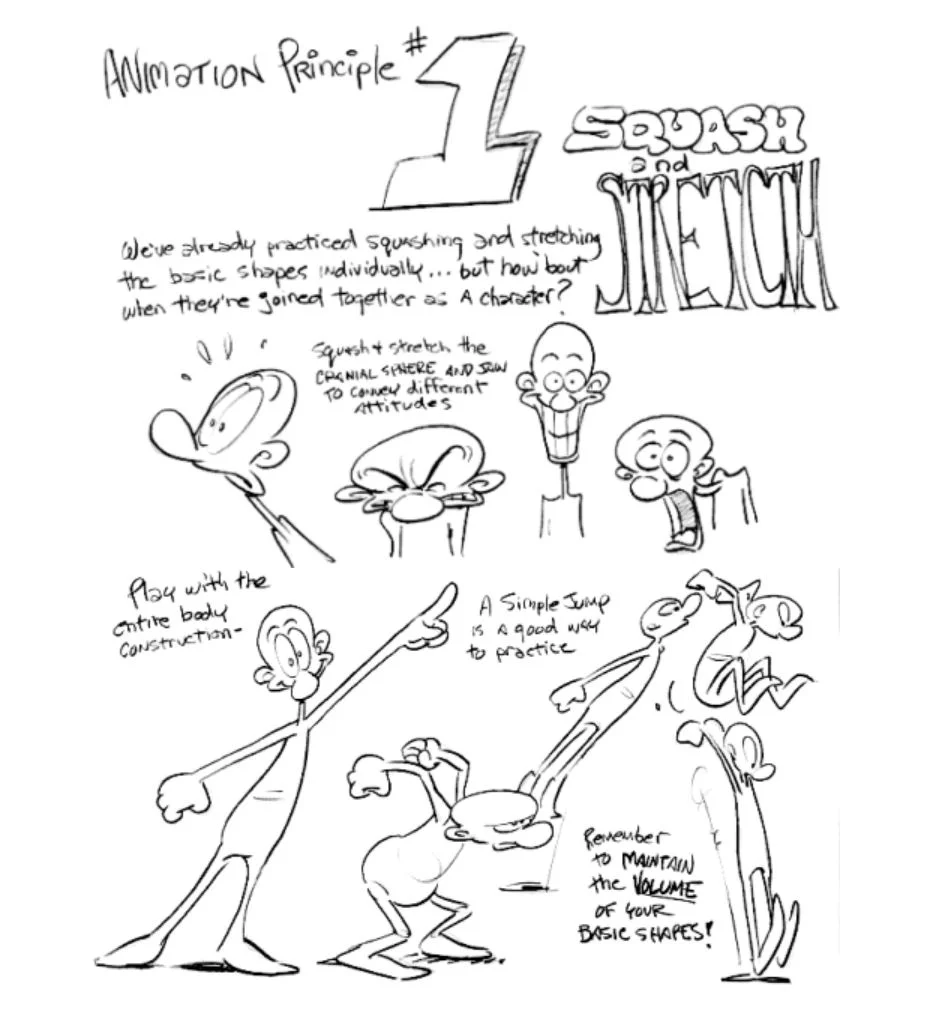 ANIMATION Principle #1
SQUASH
and
STRETCH
We've already practiced squashing and stretching
the basic shapes individually... but how bout
when they're joined together as A character?
Squash & stretch the
CRANIAL SPHERE AND JAW
TO CONVEY different
Attitudes
Play with the
entire body
CONSTRUCTION-
A Simple Jump
is a good way
to practice
Remember
to MAINTAIN
the VOLUME
OF YOUR
BASIC SHAPES!